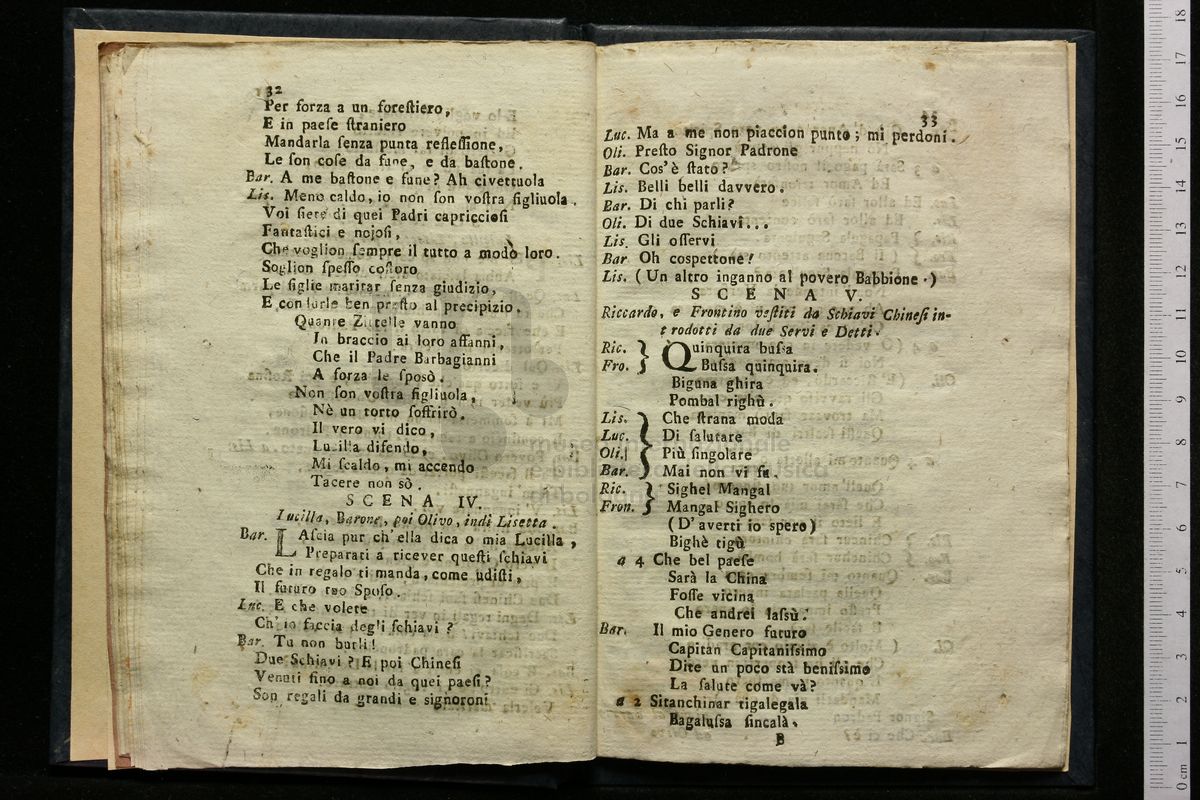 32
Per forza a un foreſtiero,
E in paeſe ſtraniero
Mandarla ſenza punta refleſſione,
Le ſon coſe da fune, e da baſtone.
Bar. A me baſtone e fune? Ah civettuola
Lis. Meno caldo, io non ſon voſtra figliuola.
Voi ſiete di quei Padri capriccioſi
Fantaſtici e nojoſi,
Che voglion ſempre il tutto a modò loro.
Soglion ſpeſſo coſtoro
Le figlie maritar ſenza giudizio,
E condurle ben preſto al precipizio.
Quante Zittelle vanno
In braccio ai loro affanni,
Che il Padre Barbagianni
A forza le ſposò.
Non ſon voſtra figliuola,
Nè un torto ſoffrirò.
Il vero vi dico,
Lucilla difendo,
Mi ſcaldo, mi accendo
Tacere non sò.
SCENA IV.
Lucilla, Barone, poi Olivo, indi Lisetta.
Bar. LAſcia pur ch'ella dica o mia Lucilla,
Preparati a ricever queſti ſchiavi
Che in regalo ti manda, come udiſti,
Il futuro tuo Spoſo.
Luc. E che volete
Ch'io faccia degl'i ſchiavi?
Bar. Tu non burli!
Due Schiavi? E poi Chineſi
Venuti fino a noi da quei paeſi?
Son regali da grandi e signoroni
33
Luc. Ma a me non piaccion punto; mi perdoni.
Oli. Preſto Signor Padrone
Bar. Cos'è ſtato?
Lis. Belli belli davvero.
Bar. Di chi parli?
Oli. Di due Schiavi...
Lis. Gli oſſervi
Bar Oh cospettone!
Lis. (Un altro inganno al povero Babbione.)
SCENA V.
Riccardo, e Frontino veſtiti da Schiavi Chineſi in-
trodotti da due Servi e Detti.
Ric. } Quinquira buſsa
Fro. } Buſsa quinquira.
Biguna ghira
Pombal righù.
Lis. } Che ſtrana moda
Luc. } Di ſalutare
Oli. } Più ſingolare
Bar. } Mai non vi fu.
Ric. } Sighel Mangal
Fron. } Mangal Sighero
(D'averti io spero)
Bighè tigù
a 4 Che bel paeſe
Sarà la China
Foſſe vicina
Che andrei laſsù!
Bar. Il mio Genero futuro
Capitan Capitaniſsimo
Dite un poco stà beniſsimo
La ſalute come và?
a 2 Sitanchinar tigalegala
Bagaluſsa ſincalà.
B
museo internazionale
e biblioteca della musica
di bologna
0 cm 1 2 3 4 5 6 7 8 9 10 11 12 13 14 15 16 17 18